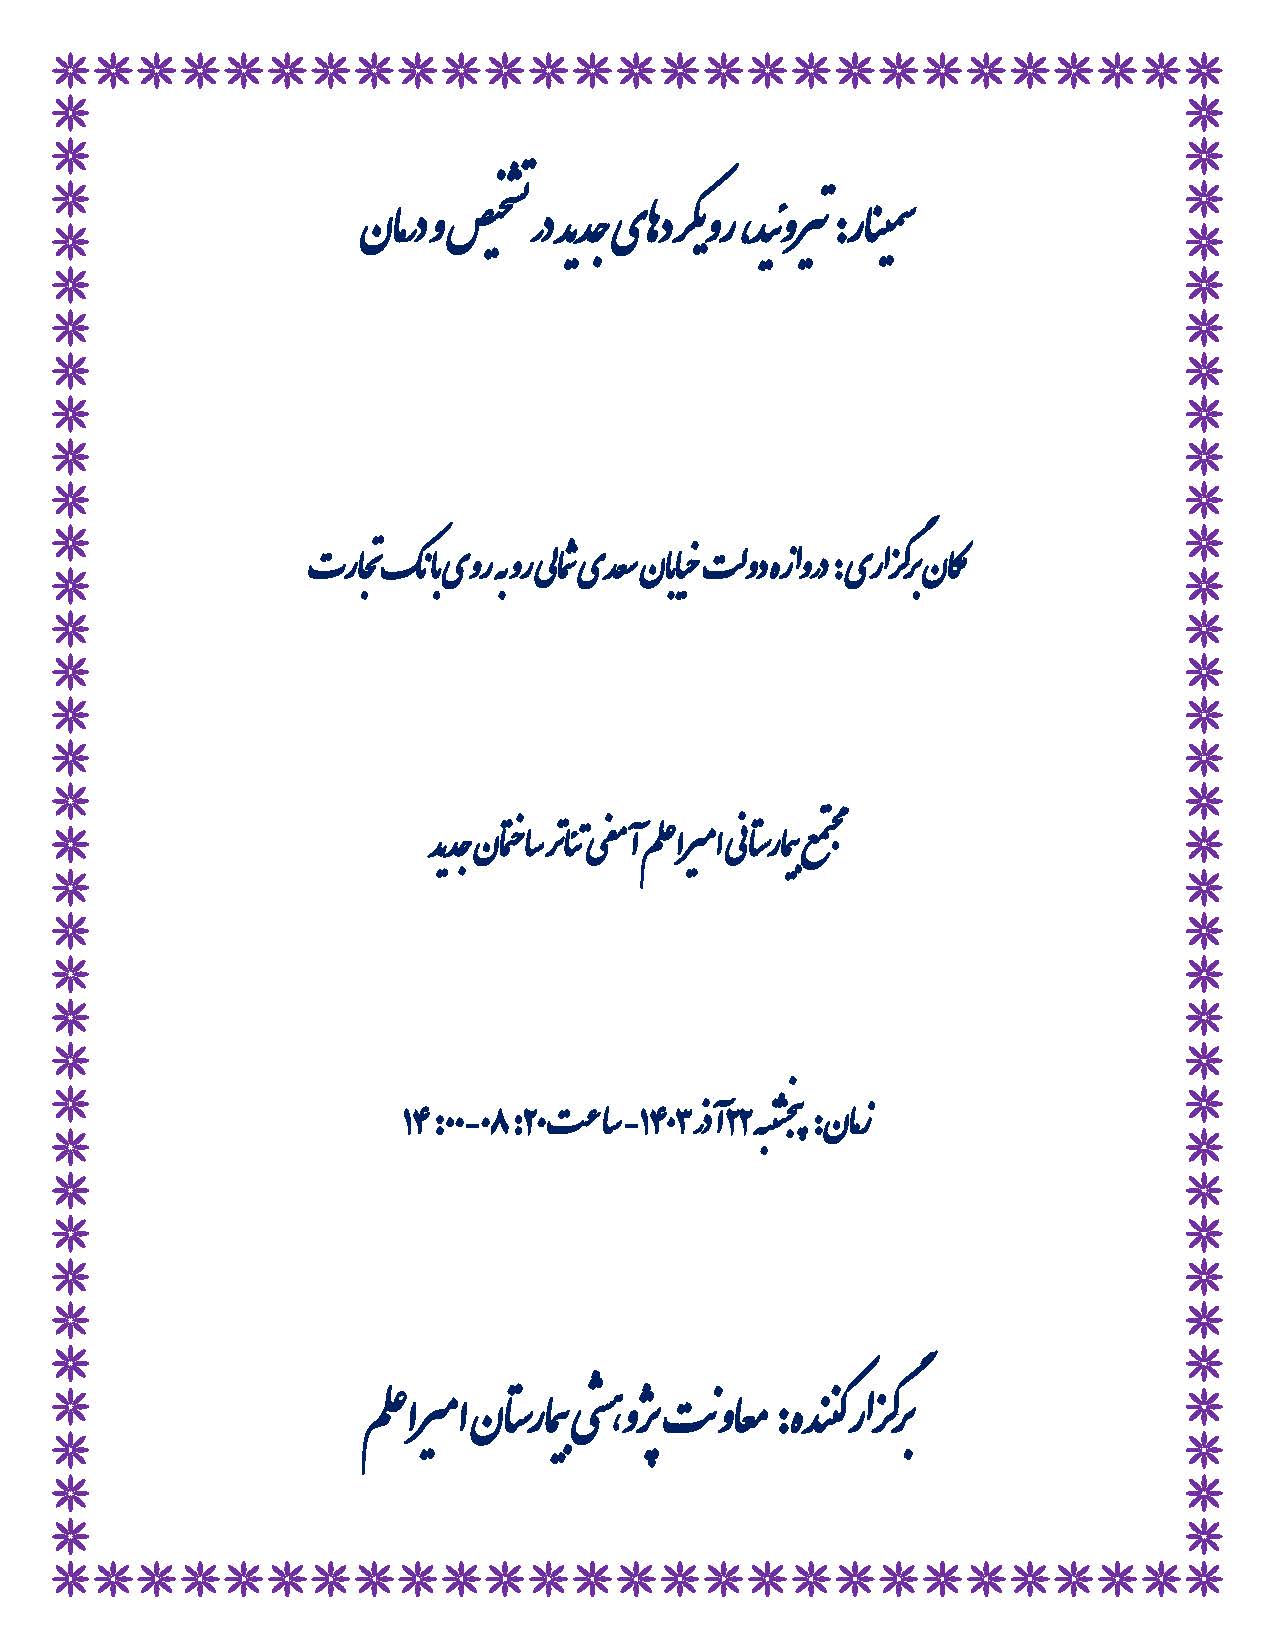 سمینار: تیروئید، رویکردهای جدید در تشخیص و درمان
مکان برگزاری: دروازه دولت خیابان سعدی شمالی روبه روی بانک تجارت
مجتمع بیمارستانی امیراعلم آمفی تئاتر ساختمان جدید
زمان: پنجشنبه ۲۲ آذر ۱۴۰۳- ساعت ۰۸:۲۰-۱۴:۰۰
برگزار کننده: معاونت پژوهشی بیمارستان امیراعلم